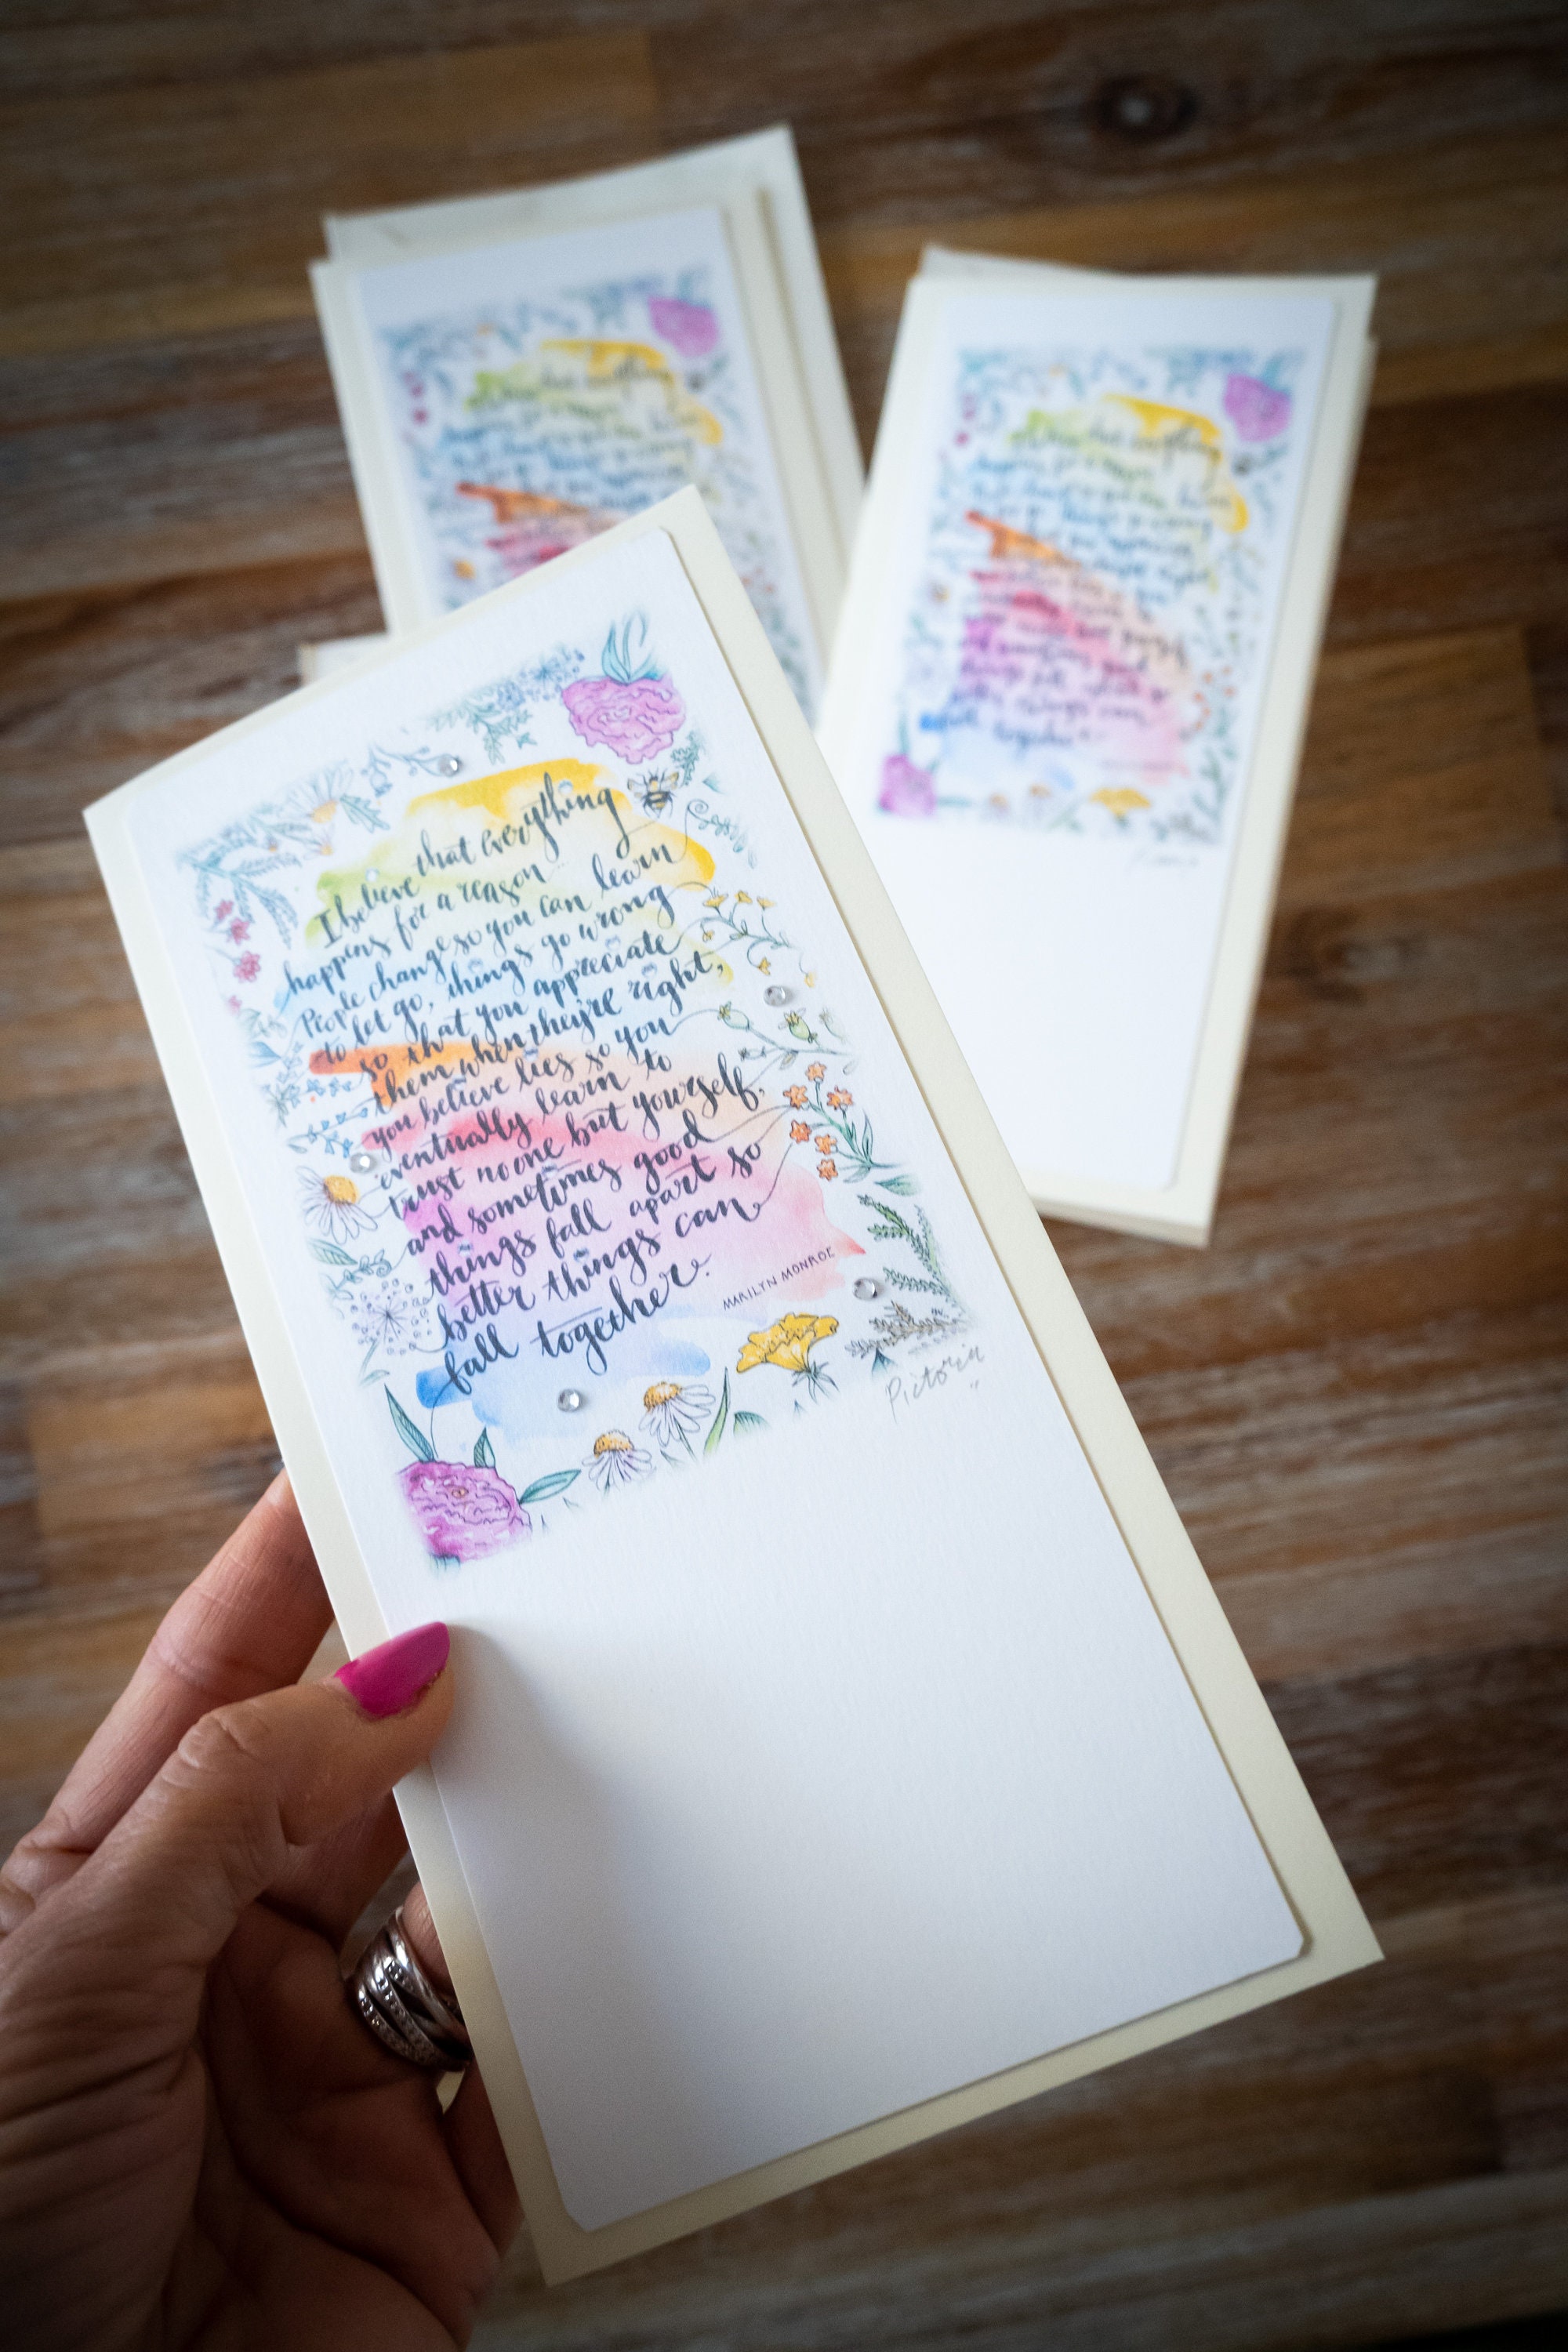 I believe that everything
happens for a reason
People change so you can learn
to let go, things go wrong
so that you appreciate
them when they're right,
you believe lies so you
eventually learn to
trust no one but yourself,
and sometimes good
things fall apart so
better things can
fall together.
MARILYN MONROE
Pictoria